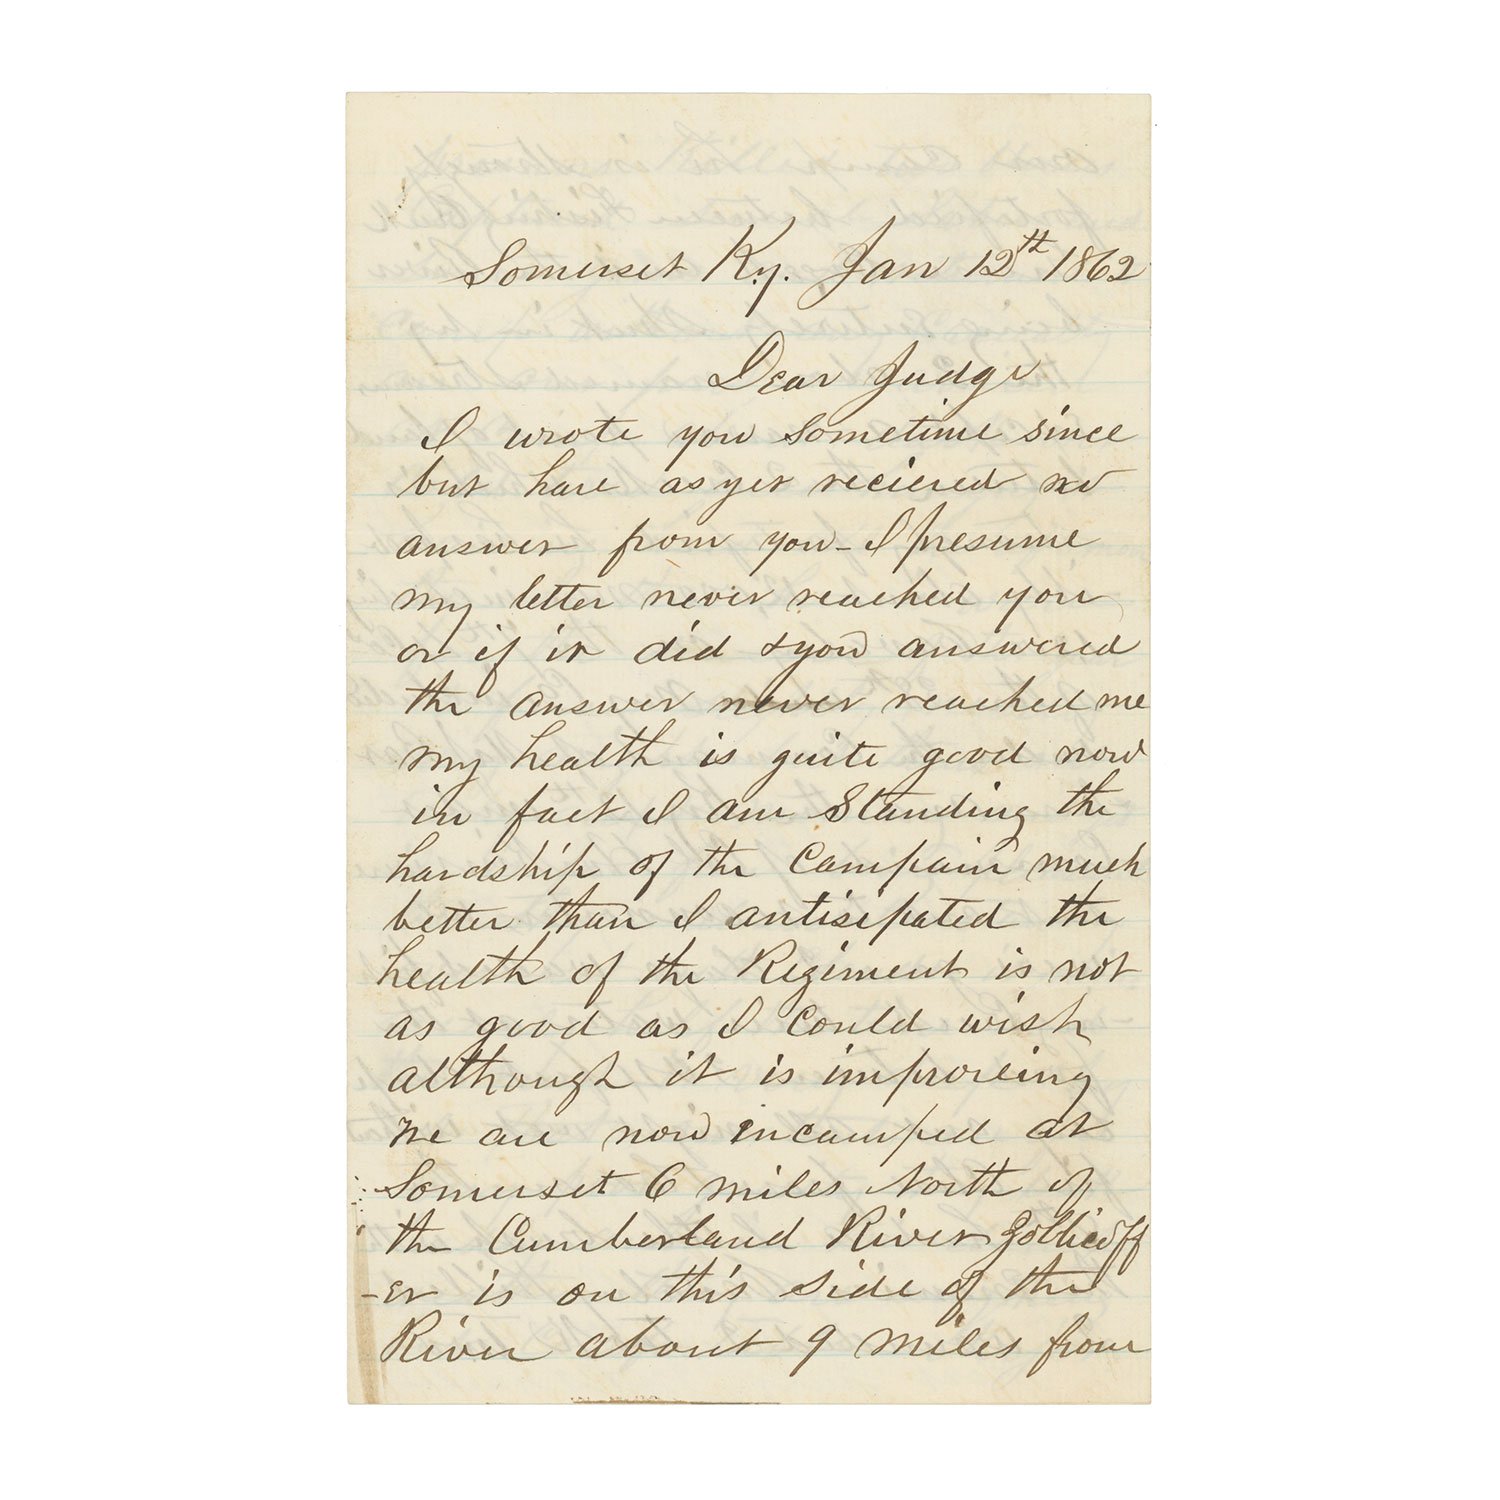 Somerset Ky. Jan 12th 1862
Dear Judge
I wrote you sometime since
but have as yet recieved no
answer from you - I presume
my letter never reached you
or if it did & you answered
the answer never reached me
my health is quite good now
in fact I am Standing the
hardship of the Campain much
better than I antisipated the
health of the Regiment is not
as good as I Could wish
although it is improveing
We are now incamped at
Somerset 6 miles North of
the Cumberland River Zollicoff
-er is on this side of the
River about 9 miles from